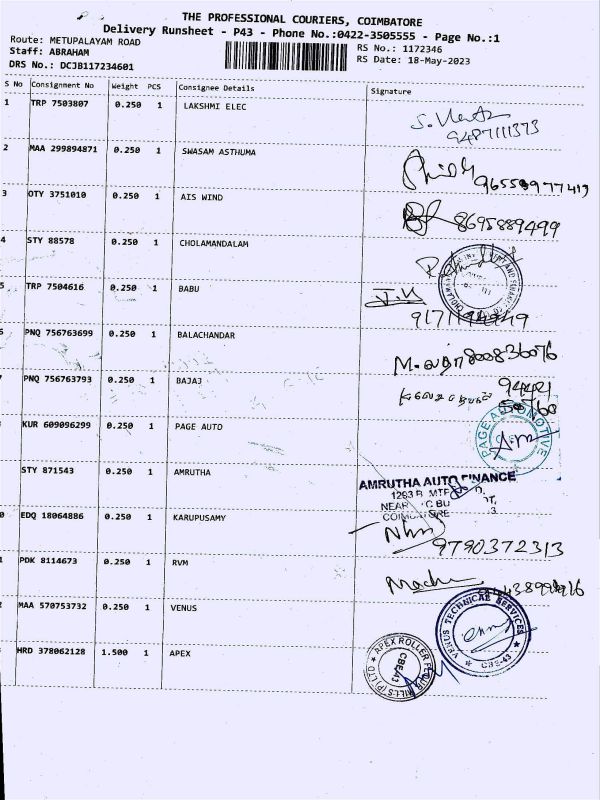 THE PROFESSIONAL COURIERS, COIMBATORE
Delivery Runsheet - P43 - Phone No.:0422-3505555 - Page No.:1
Route: METUPALAYAM ROAD
Staff: ABRAHAM
DRS No.: DCJB117234601
RS No.: 1172346
RS Date: 18-May-2023
S No Consignment No Weight PCS Consignee Details Signature
1 TRP 7503807 0.250 1 LAKSHMI ELEC
2 MAA 299894871 0.250 1 SWASAM ASTHUMA
3 OTY 3751010 0.250 1 AIS WIND 8695889499
4 STY 88578 0.250 1 CHOLAMANDALAM
5 TRP 7504616 0.250 1 BABU
6 PNQ 756763699 0.250 1 BALACHANDAR
7 PNQ 756763793 0.250 1 BAJAJ
KUR 609096299 0.250 1 PAGE AUTO PAGE AUTOMOTIVE
STY 871543 0.250 1 AMRUTHA AMRUTHA AUTO FINANCE
NEAR
0 EDQ 18064886 0.250 1 KARUPUSAMY 9790372313
1 PDK 8114673 0.250 1 RVM
2 MAA 570753732 0.250 1 VENUS VENUS TECHNICAL SERVICES CBE-43
HRD 378062128 1.500 1 APEX APEX ROLLER FLOUR MILLS (P) LTD CBE-43